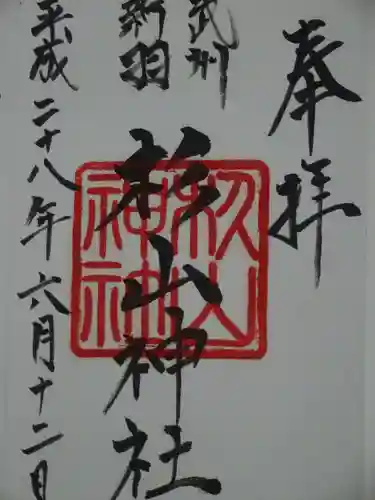 奉拝
武州
新羽
杉山神社
杉山
神社
平成二十八年六月十二日